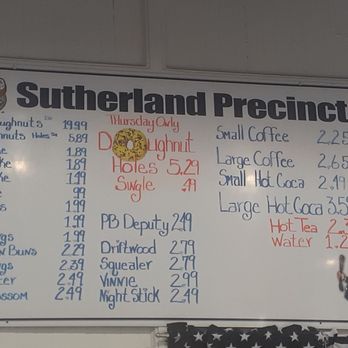 Sutherland Precinct
oughnuts 19.99
hnuts Holes 5.89
e 1.89
ke 1.89
ke 1.49
e 1.99
s 1.99
1.99
gs 1.99
n Buns 2.29
gs 2.39
er 2.49
ossom 2.49
Thursday Only
Doughnut
Holes 5.29
Single .49
PB Deputy 2.49
Driftwood 2.79
Squealer 2.79
Vinnie 2.99
Night Stick 2.49
Small Coffee 2.25
Large Coffee 2.65
Small Hot Coca 2.49
Large Hot Coca 3.5
Hot Tea 2.
Water 1.2